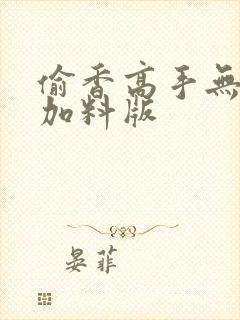 偷香高手無
加料版
晏菲